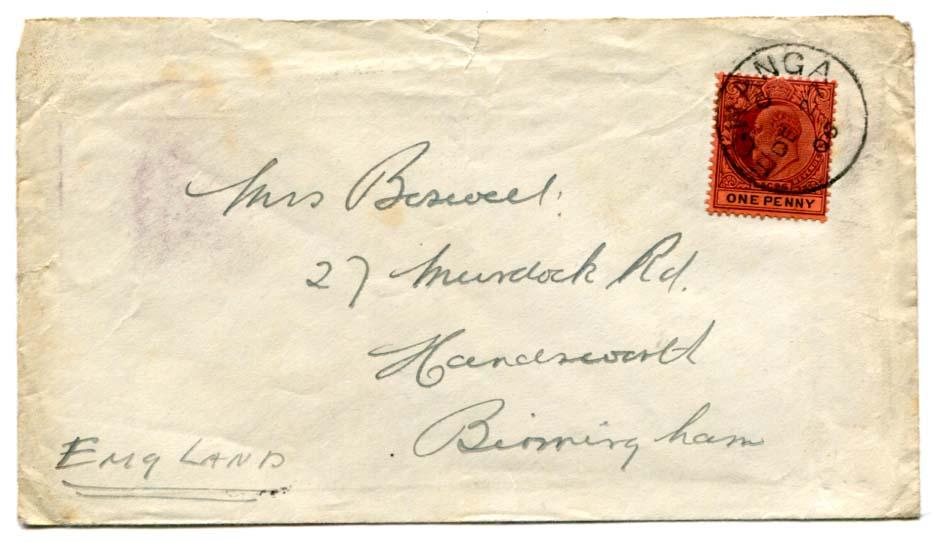 ANGA
DE
08
ONE PENNY
Mrs Boswell.
27 Murdock Rd.
Handsworth
Birmingham
ENGLAND